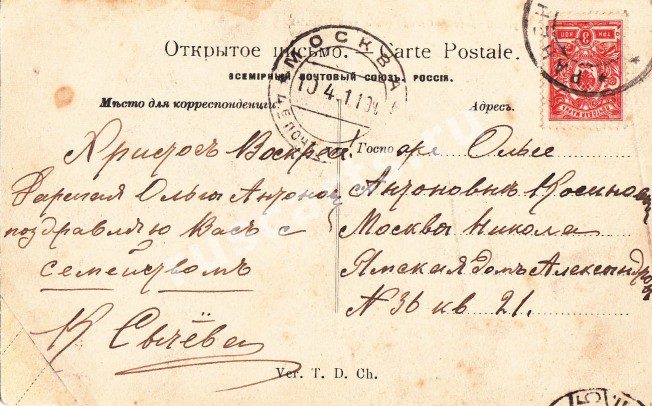 Открытое письмо. — Carte Postale.
ВСЕМІРНЫЙ ПОЧТОВЫЙ СОЮЗЪ. РОССІЯ.
Мѣсто для корреспонденціи.
Адресъ.
МОСКВА
10 4 11
Христосъ Воскресе!
Дарагая Ольга Антоновна
поздравляю Васъ с
семействомъ
К Сычёва
Госпожѣ Ольге
Антоновнѣ
Москвы Никола
Ямская домъ Александрова
N 36 кв 21.
Ver. T. D. Ch.
3